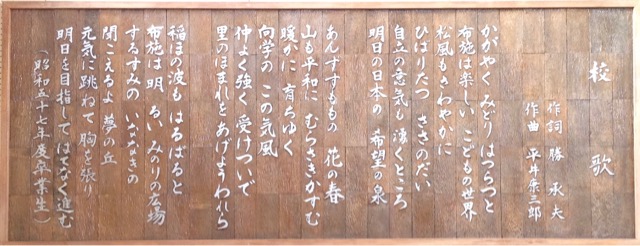 校歌
作詞 勝承夫
作曲 平井康三郎
かがやく みどり はつらつと
布施は楽しい こどもの世界
松風もさわやかに
ひばりたつ ささのだい
自立の意気も 湧くところ
明日の日本の 希望の泉
あんずすももの 花の春
山も平和に むらさきかすむ
暖かに 育ちゆく
向学の この気風
仲よく強く 受けついで
里のほまれを あげようわれら
稲ほの波も はるばると
布施は明るい みのりの広場
するすみの いななきの
聞こえるよ 夢の丘
元気に跳ねて 胸を張り
明日を目指して はてなく進む
(昭和五十七年度卒業生)